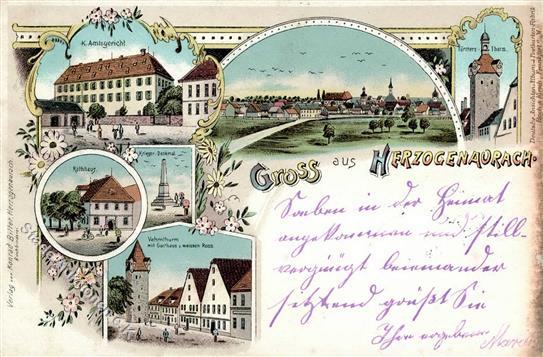 K. Amtsgericht
Türmers Thurm.
Krieger-Denkmal
Rathhaus.
Gruss aus Herzogenaurach.
Vehmthurm
mit Gasthaus z. weissen Ross
Soeben in der Heimat
angekommen und still-
vergnügt beieinander
sitzend grüßt Sie
Ihr ergebener
Verlag von Konrad Bitter, Herzogenaurach.